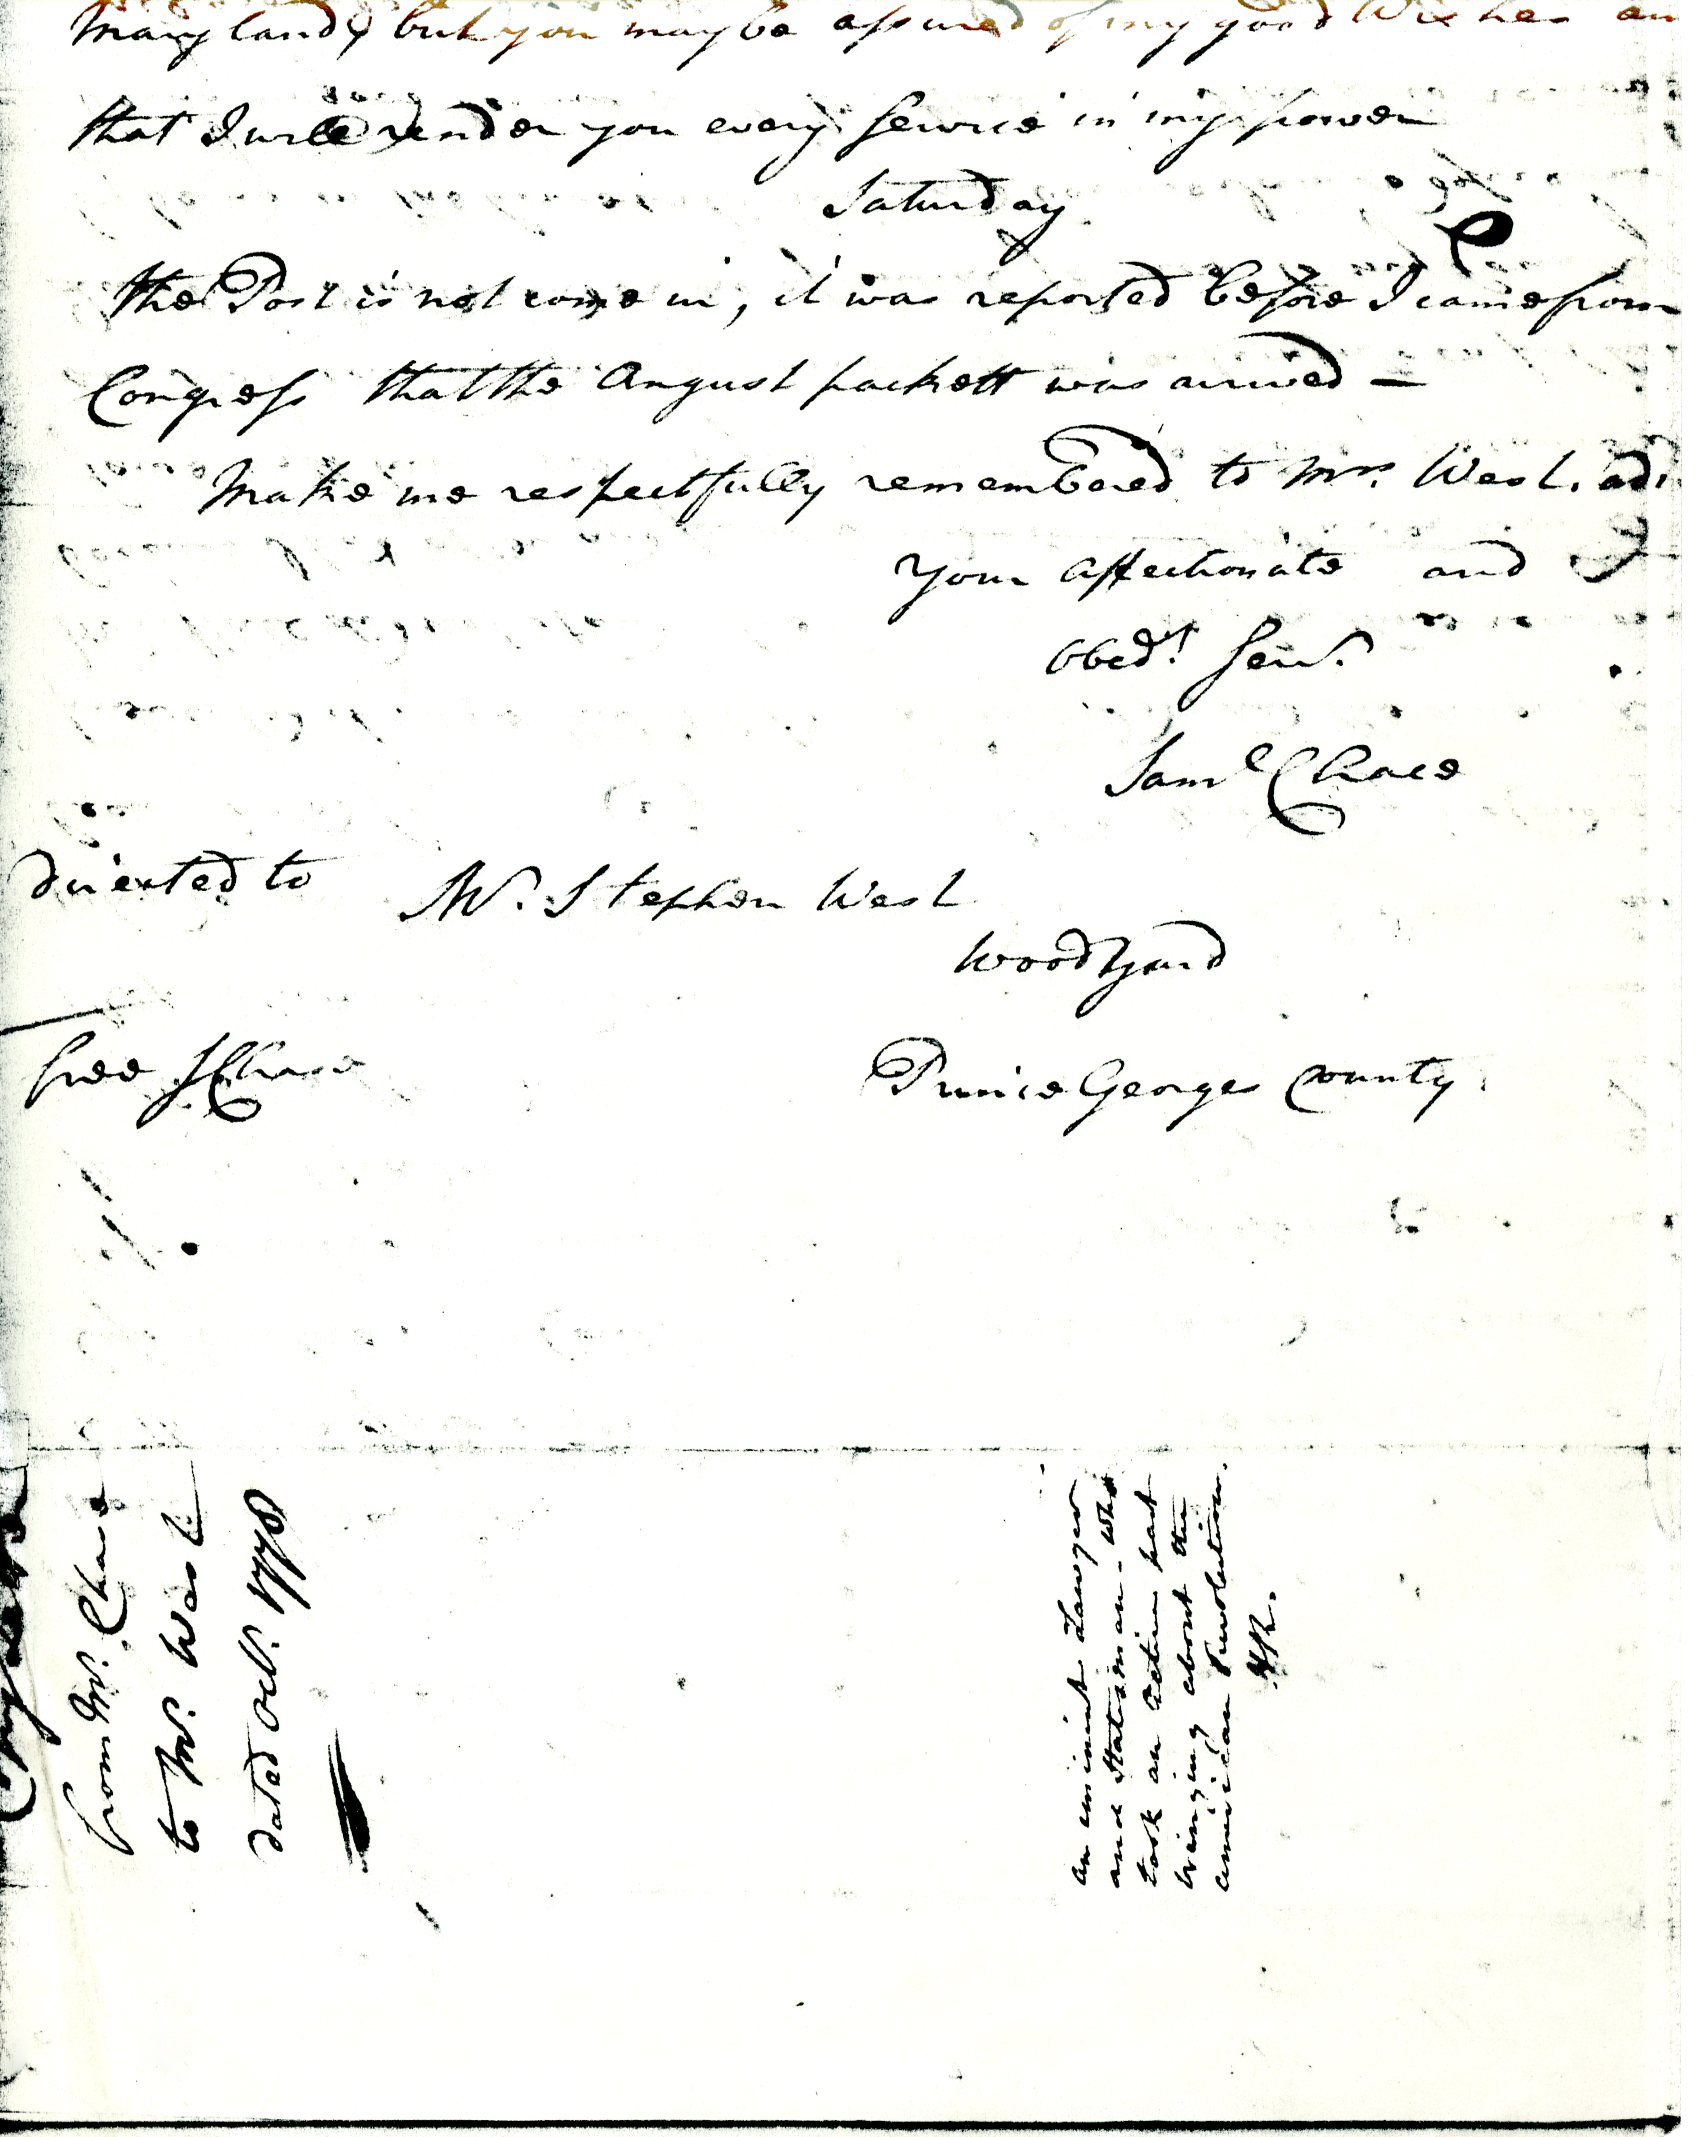 Maryland, but you may be assured of my good Wishes an
that I will render you every service in my power
Saturday
the Post is not come in, it was reported before I came from
Congress that the August packett was arrived —
Make me respectfully remembered to Mrs. West. adi
Your affectionate and
obedt. Servt.
Saml Chase
directed to Mr. Stephen West
Woodyard
Prince Georges County.
free S Chase
from Mr. Chase
to Mr. West
dated Octr. 1778
an eminent Lawyer
and Statesman - who
took an active part
bringing about the
american Revolution.